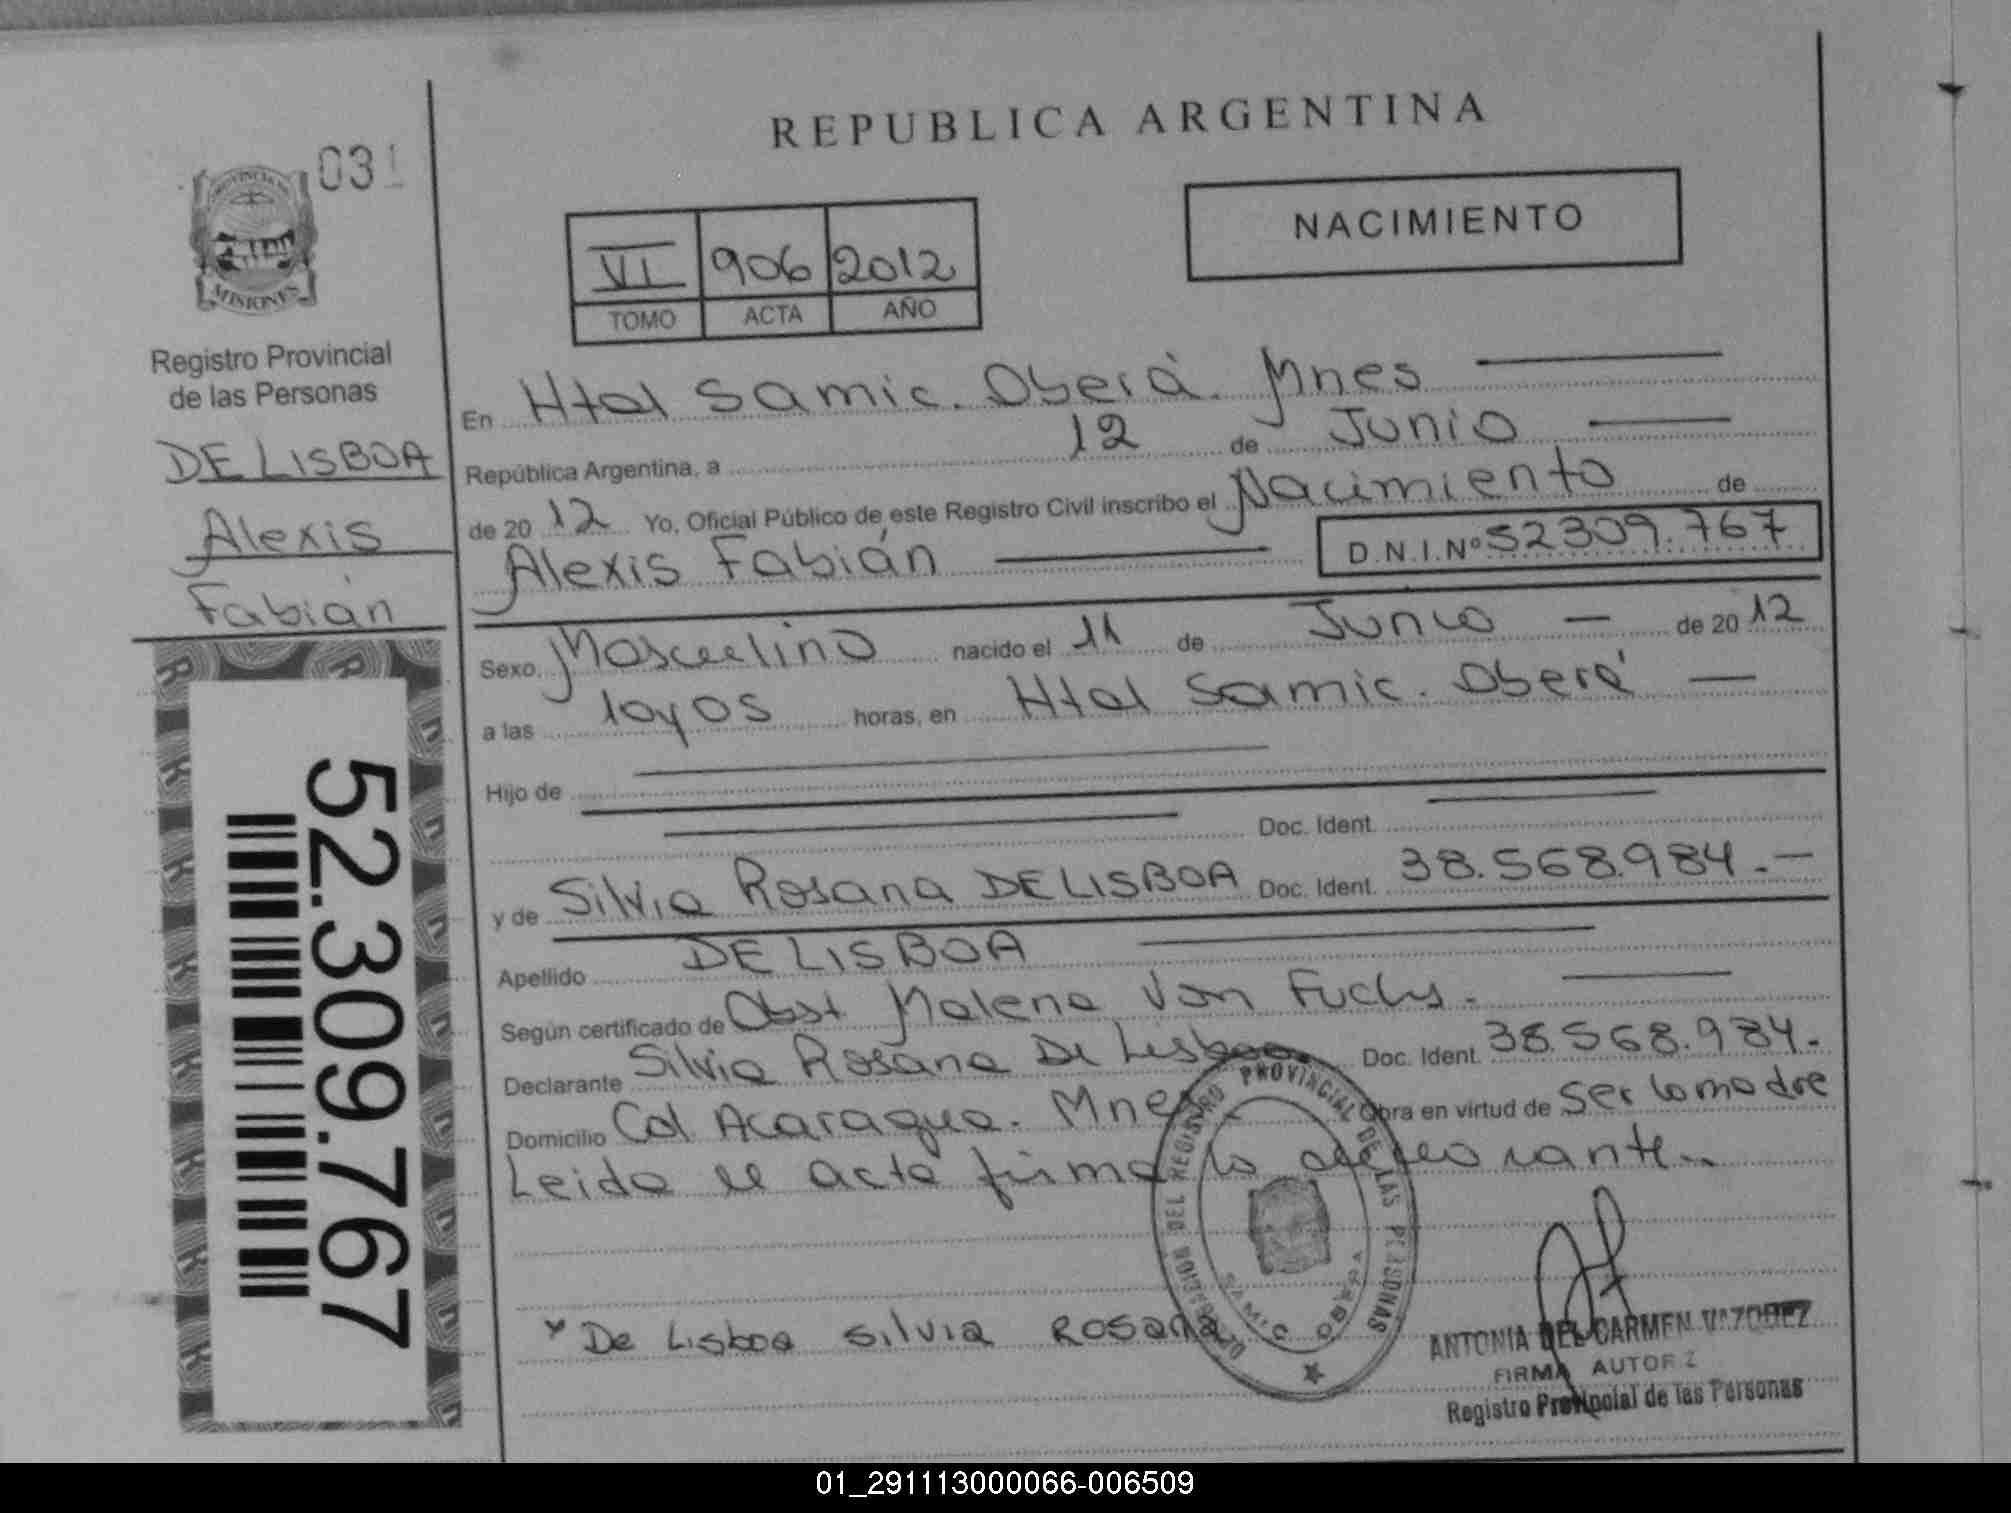 REPUBLICA ARGENTINA
031
PROVINCIA DE
MISIONES
Registro Provincial
de las Personas
DE LISBOA
Alexis
Fabián
52.309.767
VI 906 2012
TOMO ACTA AÑO
NACIMIENTO
En Htal Samic. Oberá. Mnes
República Argentina, a 12 de Junio
de 20 12 Yo, Oficial Público de este Registro Civil inscribo el Nacimiento de
Alexis Fabián D.N.I.Nº 52309.767
Sexo Masculino nacido el 11 de Junio — de 20 12
a las 10y05 horas, en Htal Samic. Oberá —
Hijo de
Doc. Ident.
y de Silvia Rosana DE LISBOA Doc. Ident. 38.568.984.—
Apellido DE LISBOA
Según certificado de Obst Malena Von Fuchs.
Declarante Silvia Rosana De Lisboa Doc. Ident. 38.568.984.
Domicilio Col Acaragua. Mnes Obra en virtud de ser la madre
Leida el acta firma la declarante.
DELEGACION DEL REGISTRO PROVINCIAL DE LAS PERSONAS
SAMIC OBERA
De Lisboa Silvia Rosana
ANTONIA DEL CARMEN VAZQUEZ
FIRMA AUTORIZ
Registro Provincial de las Personas
01_291113000066-006509